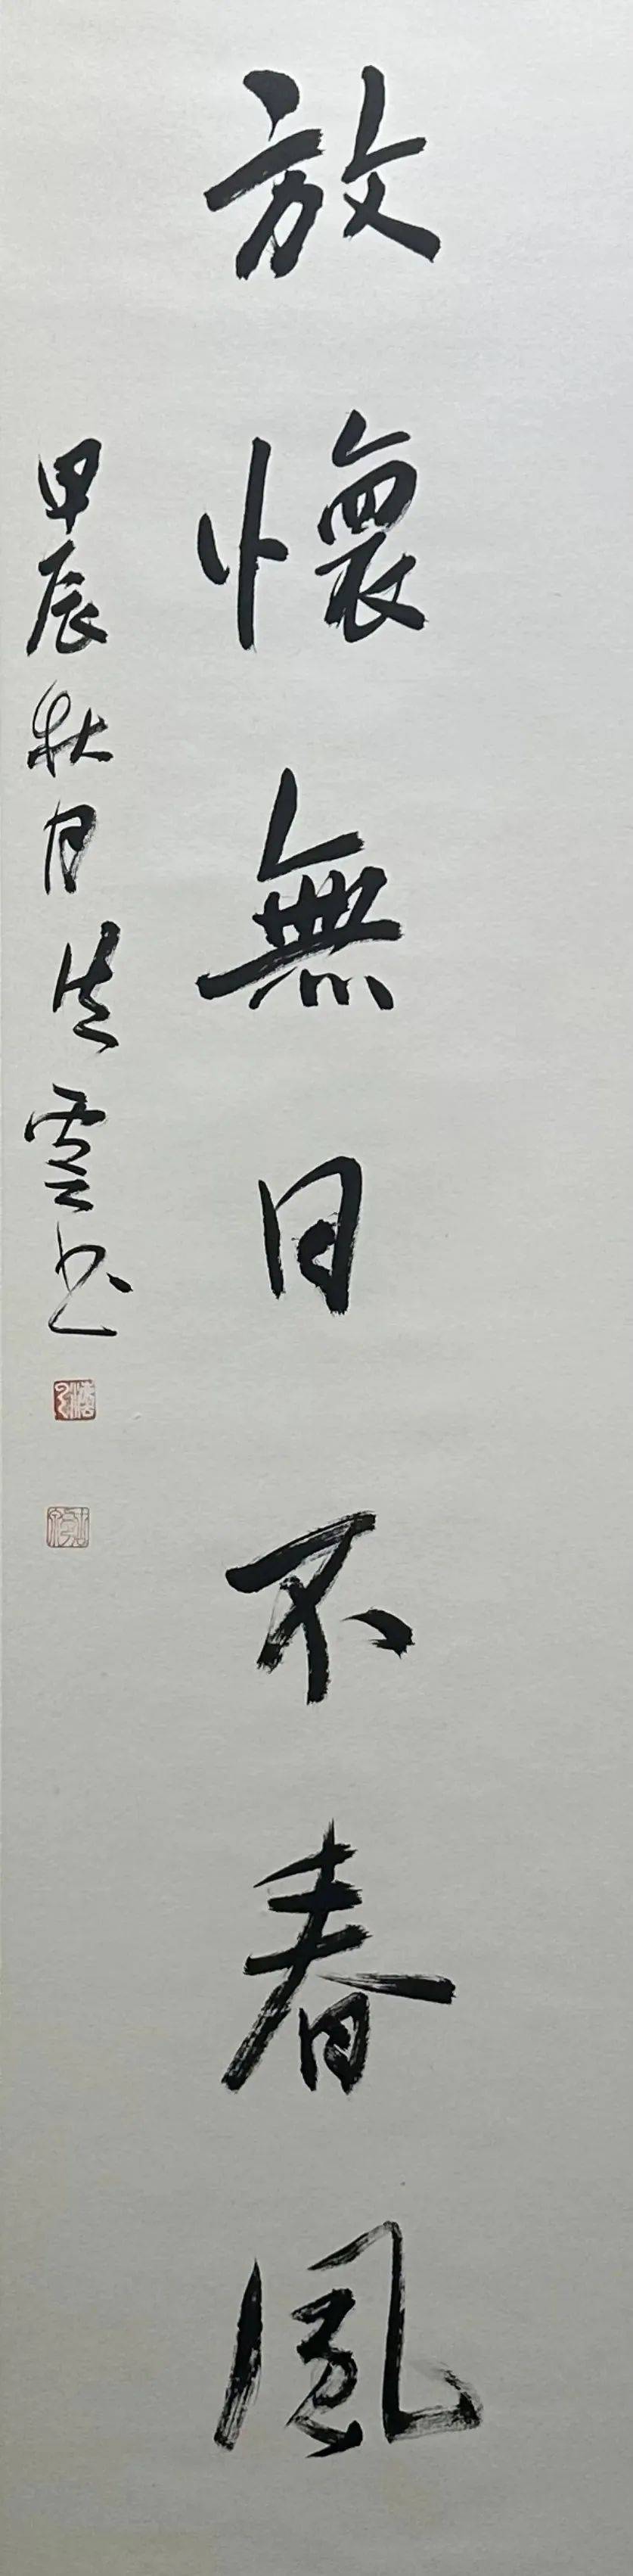 放懷無日不春風
甲辰秋月 雲书